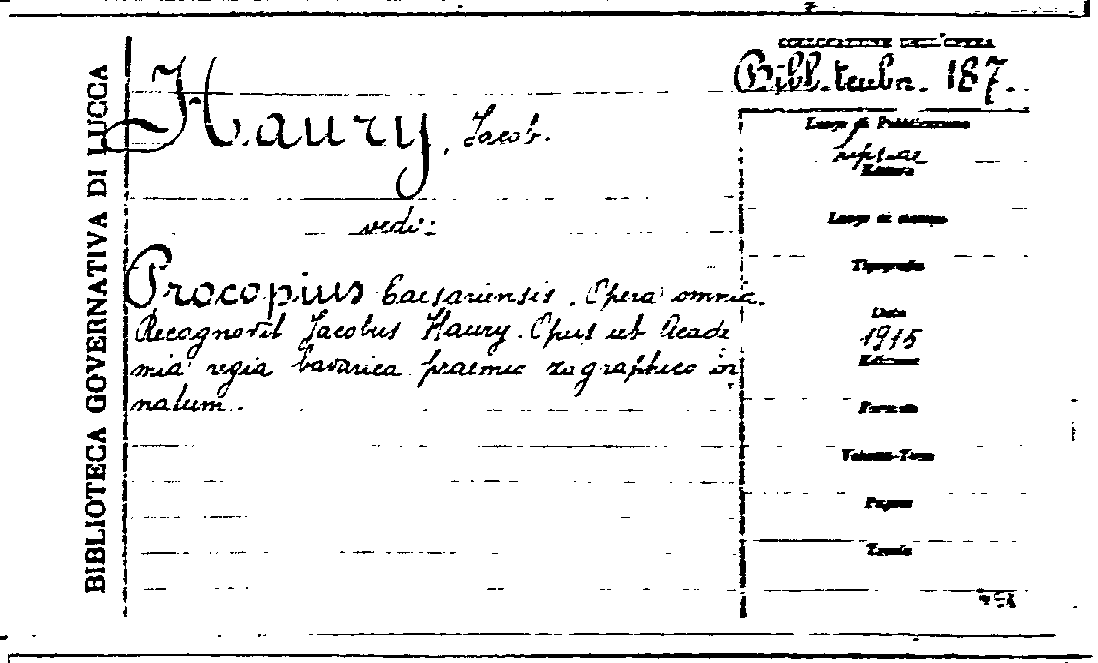 BIBLIOTECA GOVERNATIVA DI LUCCA
COLLOCAZIONE DELL'OPERA
Bibl. teubn. 187.
Haury, Jacob.
vedi:
Procopius Caesariensis. Opera omnia.
Recognovit Jacobus Haury. Opus ab Acade
mia regia bavarica praemio zographico or
natum.
Luogo di Pubblicazione
Lipsiae
Editore
Luogo di stampa
Tipografia
Data
1915
Edizione
Formato
Volume-Tomo
Pagine
Tavole